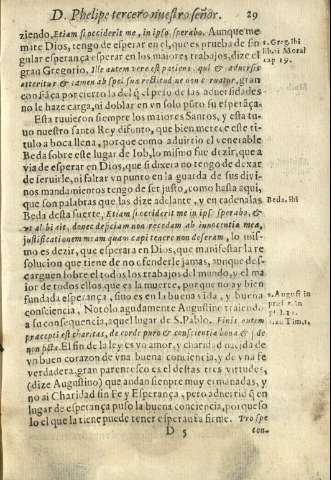 D. Phelipe tercero nuestro señor. 29
ziendo, Etiam si occiderit me, in ipso sperabo. Aunque me
mate Dios, tengo de esperar en el, que es prueba de sin
gular esperança esperar en los mayores trabajos, dize el
gran Gregorio, Ille autem vere est patiens qui & aduersis
atteritur & tamen ab spei suæ rectitudine non curuatur, gran
confiãça por cierto la del q̃ el peso de las aduersidades
no le haze carga, ni doblar en vn solo pũto su esperãça.
Esta tuuieron siempre los mayores Santos, y esta tu-
uo nuestro santo Rey difunto, que bien merece este ti-
tulo a boca llena, porque como aduirtio el venerable
Beda sobre este lugar de Iob, lo mismo fue dezir, que a
via de esperar en Dios, que si dixera no tengo de dexar
de seruirle, ni faltar vn punto en la guarda de sus divi
nos mandamientos tengo de ser justo, como hasta aqui,
que son palabras que las dize adelante, y en cadenalas
Beda desta suerte, Etiam si occiderit me in ipso sperabo, &
vt alibi ait, donec deficiam non recedam ab innocentia mea,
justificationem meam quam cæpi tenere non deseram, lo mis-
mo es dezir, que esperara en Dios, que manifestar la re
solucion que tiene de no ofenderle jamas, aunque des-
carguen sobre el todos los trabajos del mundo, y el ma
ior de todos ellos que es la muerte, porque no ay bien
fundada esperança, sino es en la buena vida, y buena
consciencia, Notolo agudamente Augustino traiendo
a su consequencia, aquel lugar de S. Pablo. Finis autem
præcepti est charitas, de corde puro & conscientia bona & fide
non ficta. El fin de la ley es vn amor, y charidad nacida de
vn buen corazon de vna buena conciencia, y de vna fe
verdadera, gran parentesco es el destas tres virtudes,
(dize Augustino) que andan siempre muy ermanadas, y
no ai Charidad sin Fe y Esperança, pero aduertid q̃ en
lugar de esperança puso la buena conciencia, porque so
lo el que la tiene puede tener esperança firme. Pro spe
D 5 con-
S. Greg. lib
Moral
cap 19.
Beda. ibi
S. August in
Tim. 1.